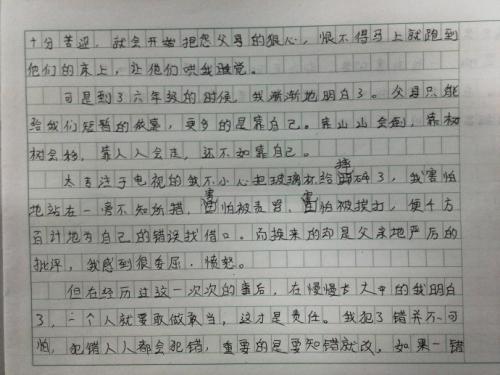 十分苦涩，就会开始抱怨父母的狠心，恨不得马上就跑到
他们的床上，让他们哄我睡觉。
可是到了六年级的时候，我渐渐地明白了。父母只能
给我们短暂的依靠，更多的是靠自己。靠山山会倒，靠树
树会枯，靠人人会走，还不如靠自己。
太专注于电视的我不小心把玻璃杯给摔碎了，我害怕
地站在一旁不知所错，害怕被责骂，害怕被挨打，便千方
百计地为自己的错误找借口。而换来的却是父亲地严厉的
批评，我感到很委屈、愤怒。
但在经历过这一次次的事后，在慢慢长大中的我明白
了，一个人就要敢做敢当，这才是责任。我犯了错并不可
怕，犯错人人都会犯错，重要的是要知错就改，如果一错